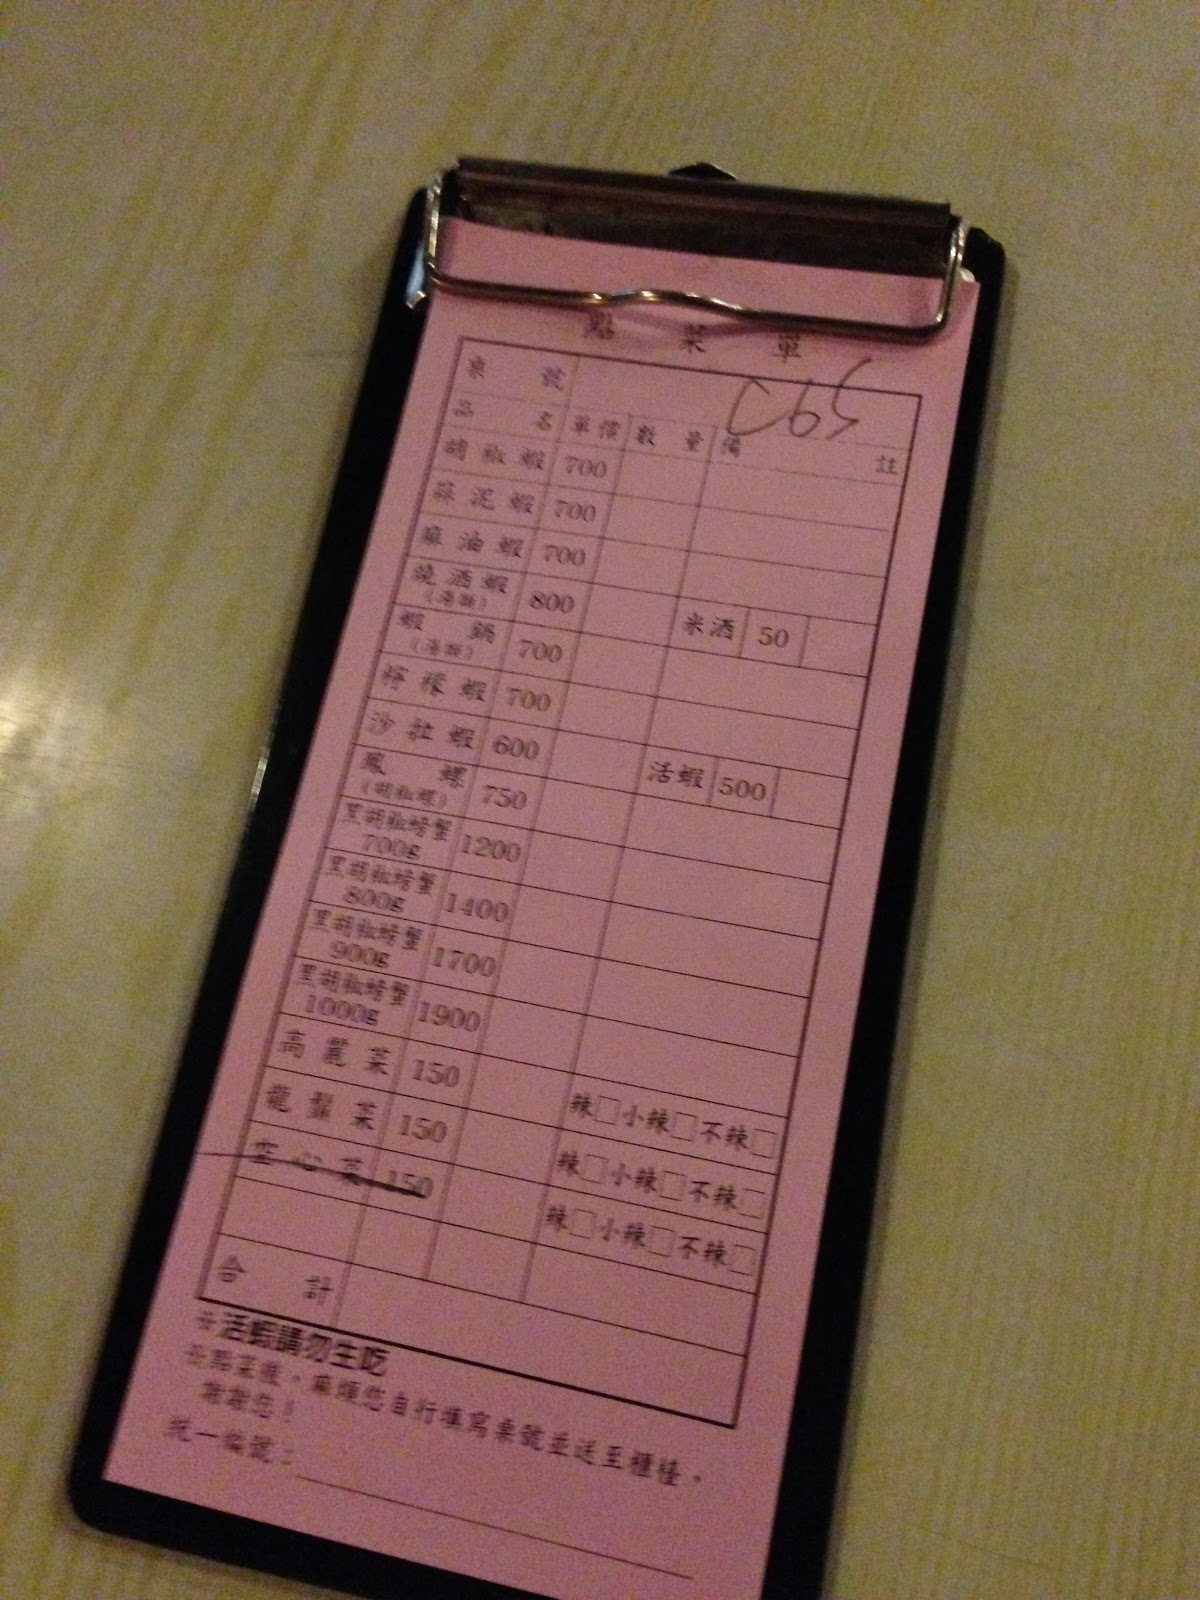 點菜單
桌號 C65
品名 單價 數量 備註
胡椒蝦 700
蒜泥蝦 700
麻油蝦 700
燒酒蝦(湯類) 800 米酒 50
蝦鍋(湯類) 700
檸檬蝦 700
沙拉蝦 600 活蝦 500
鳳螺(胡椒螺) 750
黑胡椒螃蟹700g 1200
黑胡椒螃蟹800g 1400
黑胡椒螃蟹900g 1700
黑胡椒螃蟹1000g 1900
高麗菜 150 辣□小辣□不辣□
龍鬚菜 150 辣□小辣□不辣□
空心菜 150 辣□小辣□不辣□
合計
※活蝦請勿生吃
※點菜後，麻煩您自行填寫桌號並送至櫃檯，
謝謝您！
統一編號：